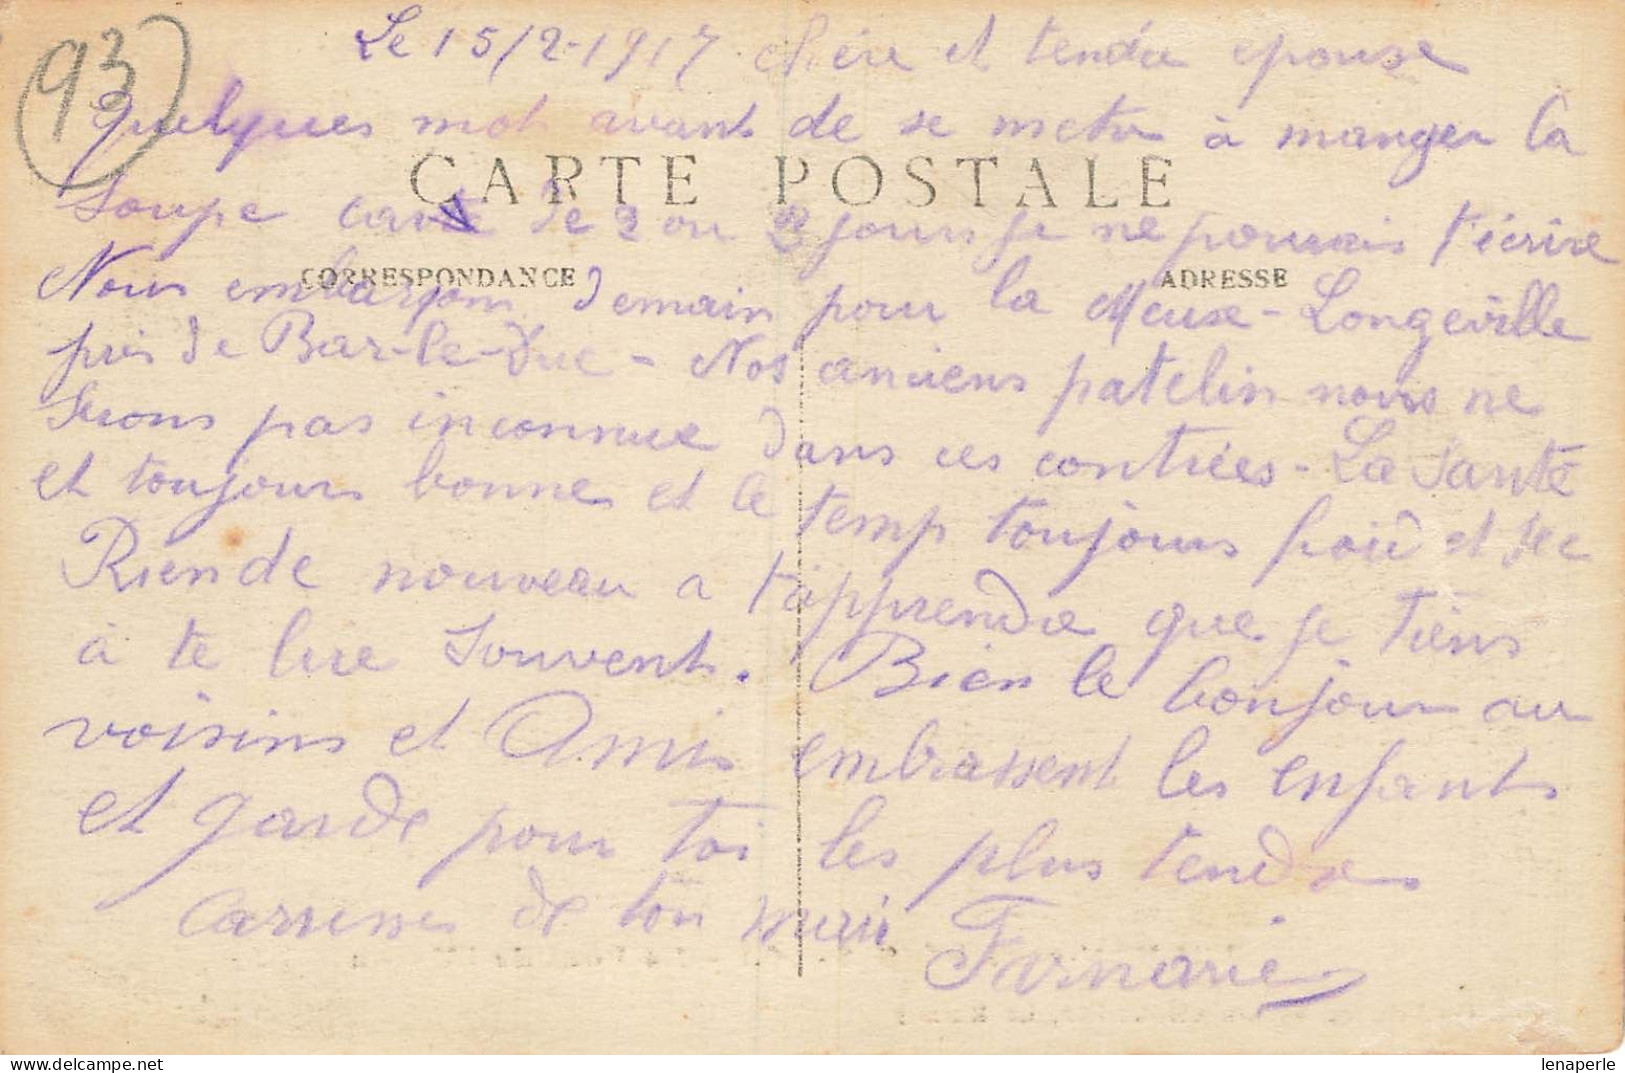 93
Le 15/2-1917 chère et tendre epouse
Quelques mots avant de se metre à manger la
CARTE POSTALE
Soupe car de 2 ou 3 jours je ne pourrais t'écrire
CORRESPONDANCE ADRESSE
Nous embarquons demain pour la Meuse - Longeville
près de Bar-le-Duc - Nos anciens patelin nous ne
Serons pas inconnue dans ces contrées - La Santé
et toujours bonne et le temp toujours froid et sec
Rien de nouveau a t'apprendre que je Tiens
à te lire Souvent. Bien le bonjour au
voisins et Amis embrassent les enfants
et garde pour toi les plus tendres
Caresses de ton mari Farnarie
lenaperle